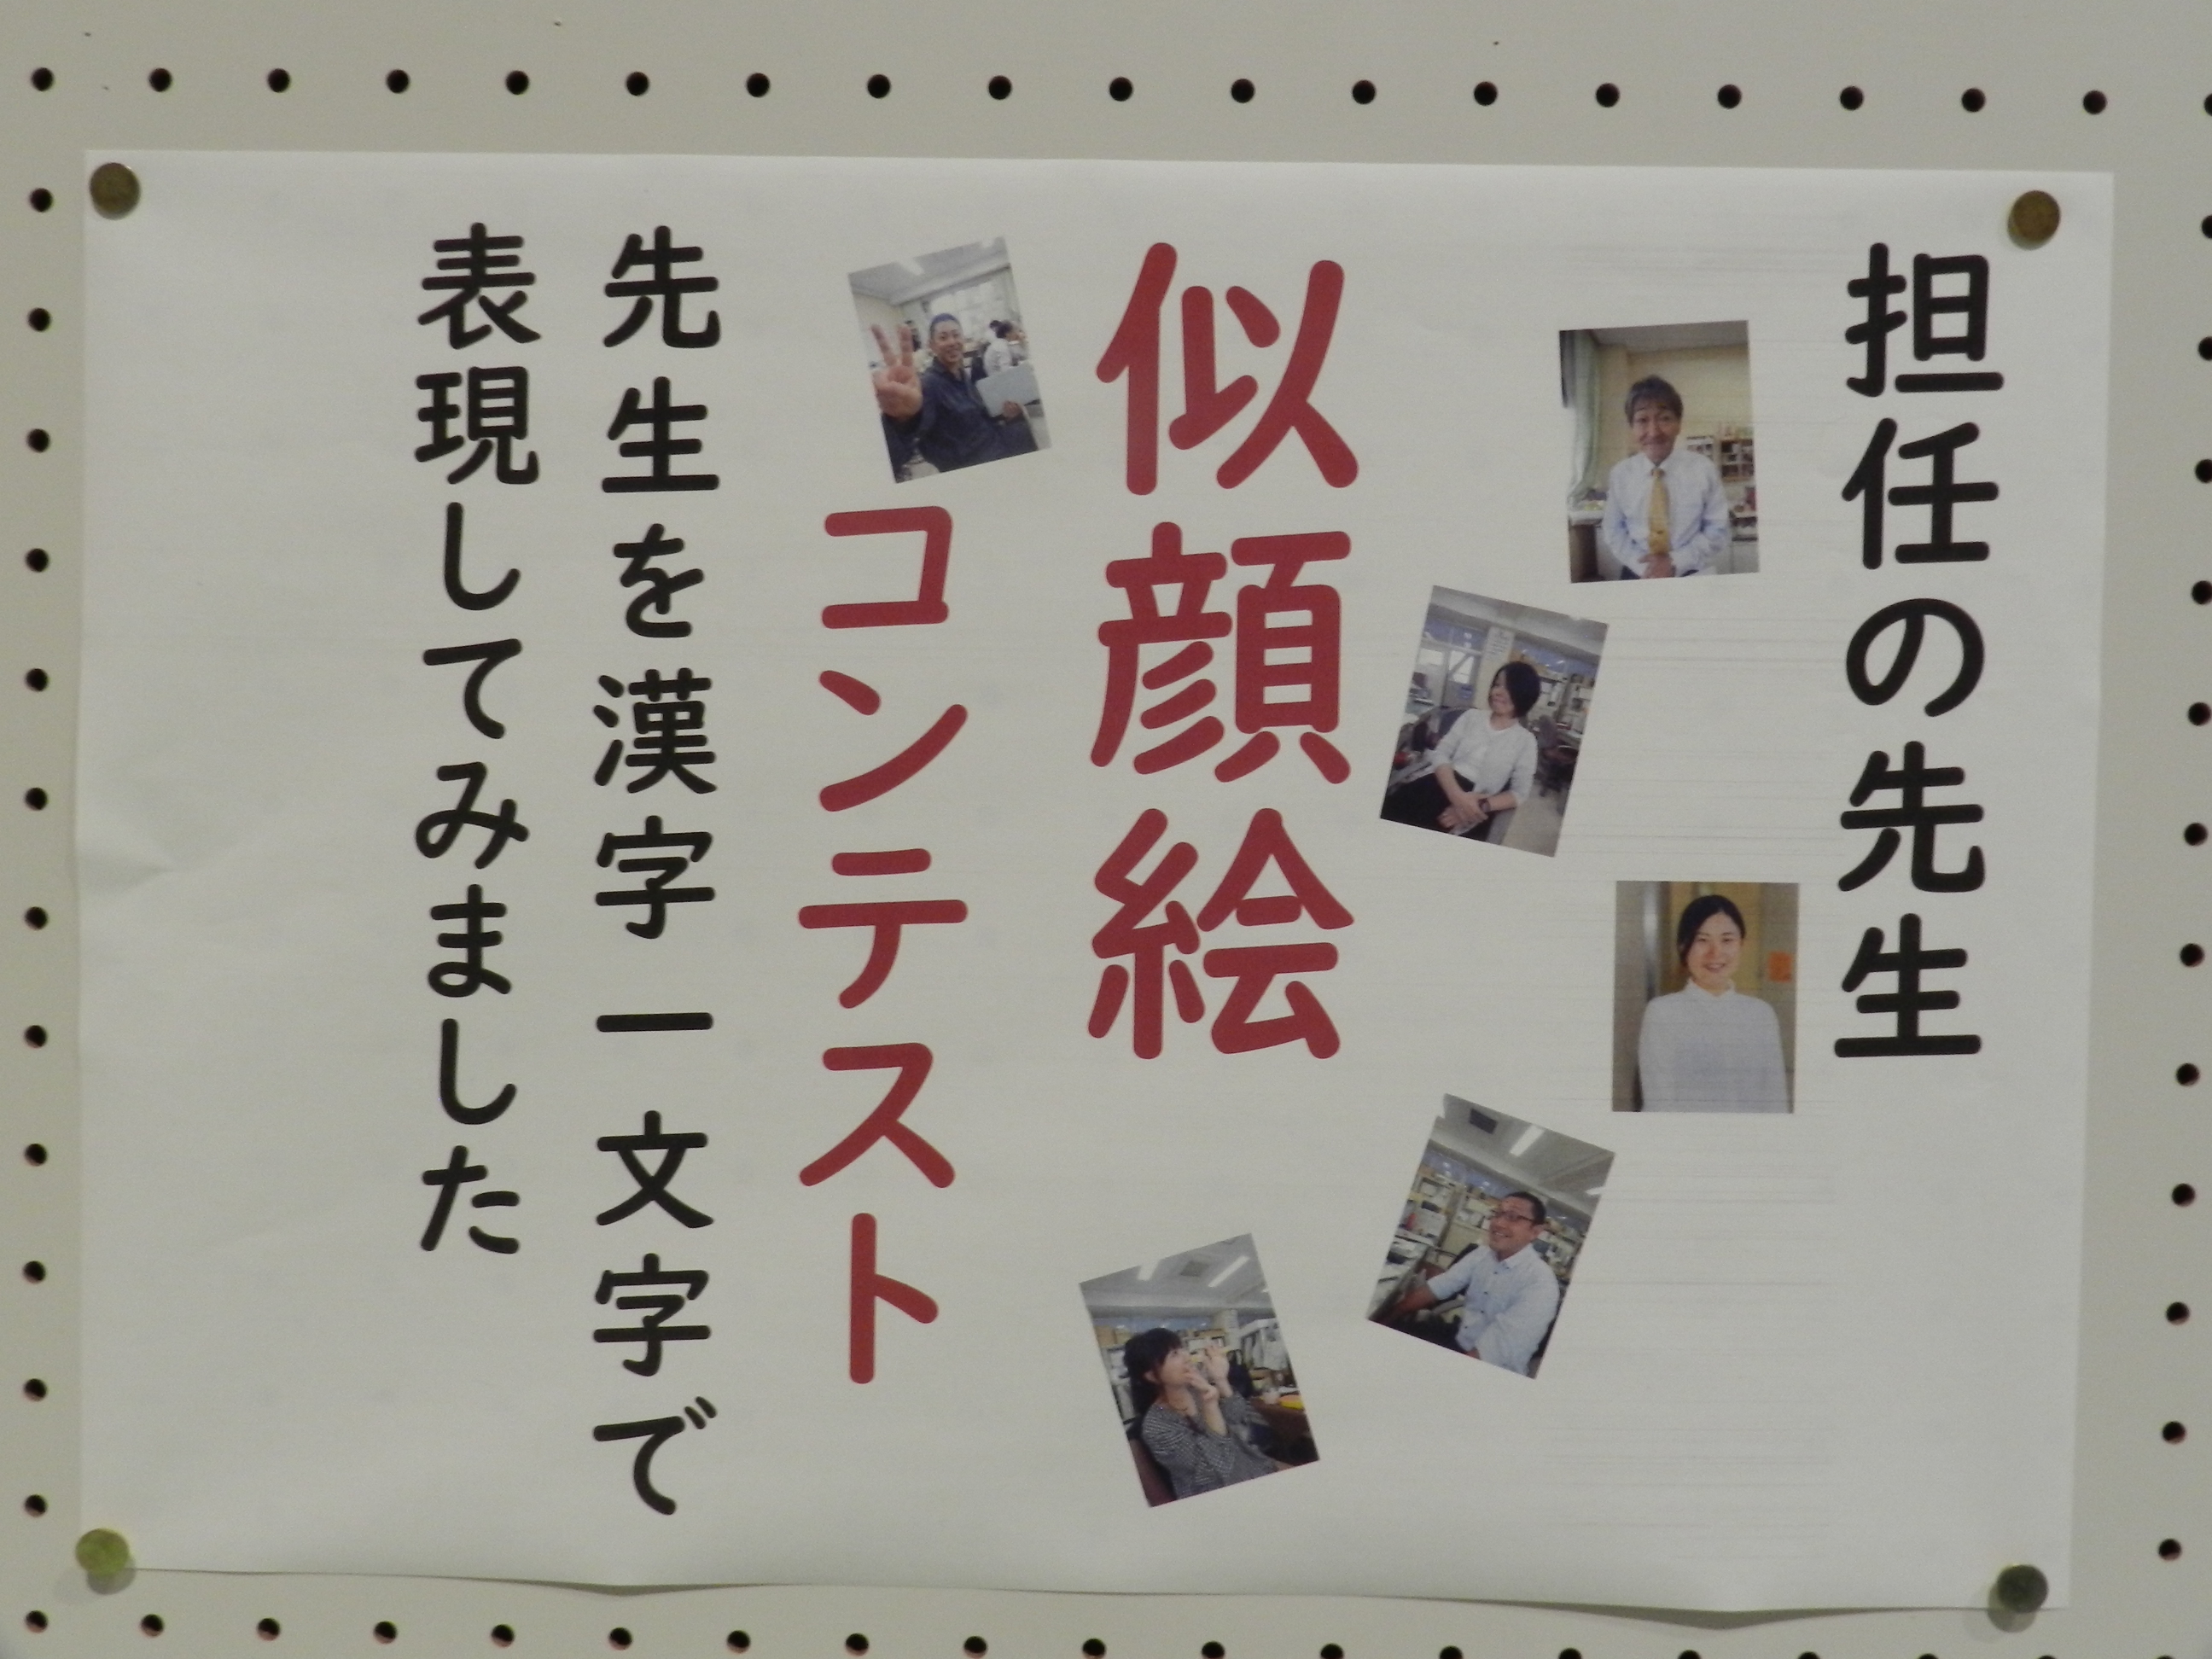 担任の先生
似顔絵
コンテスト
先生を漢字一文字で
表現してみました